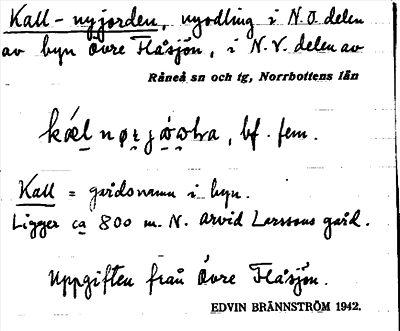 Kall-nyjorden, nyodling i N.O delen
av byn Övre Flåsjön, i N.V. delen av
Råneå sn och tg, Norrbottens län
bf. fem.
Kall = gårdsnamn i byn.
Ligger ca 800 m. N. Arvid Larssons gård.
Uppgiften från Övre Flåsjön.
EDVIN BRÄNNSTRÖM 1942.